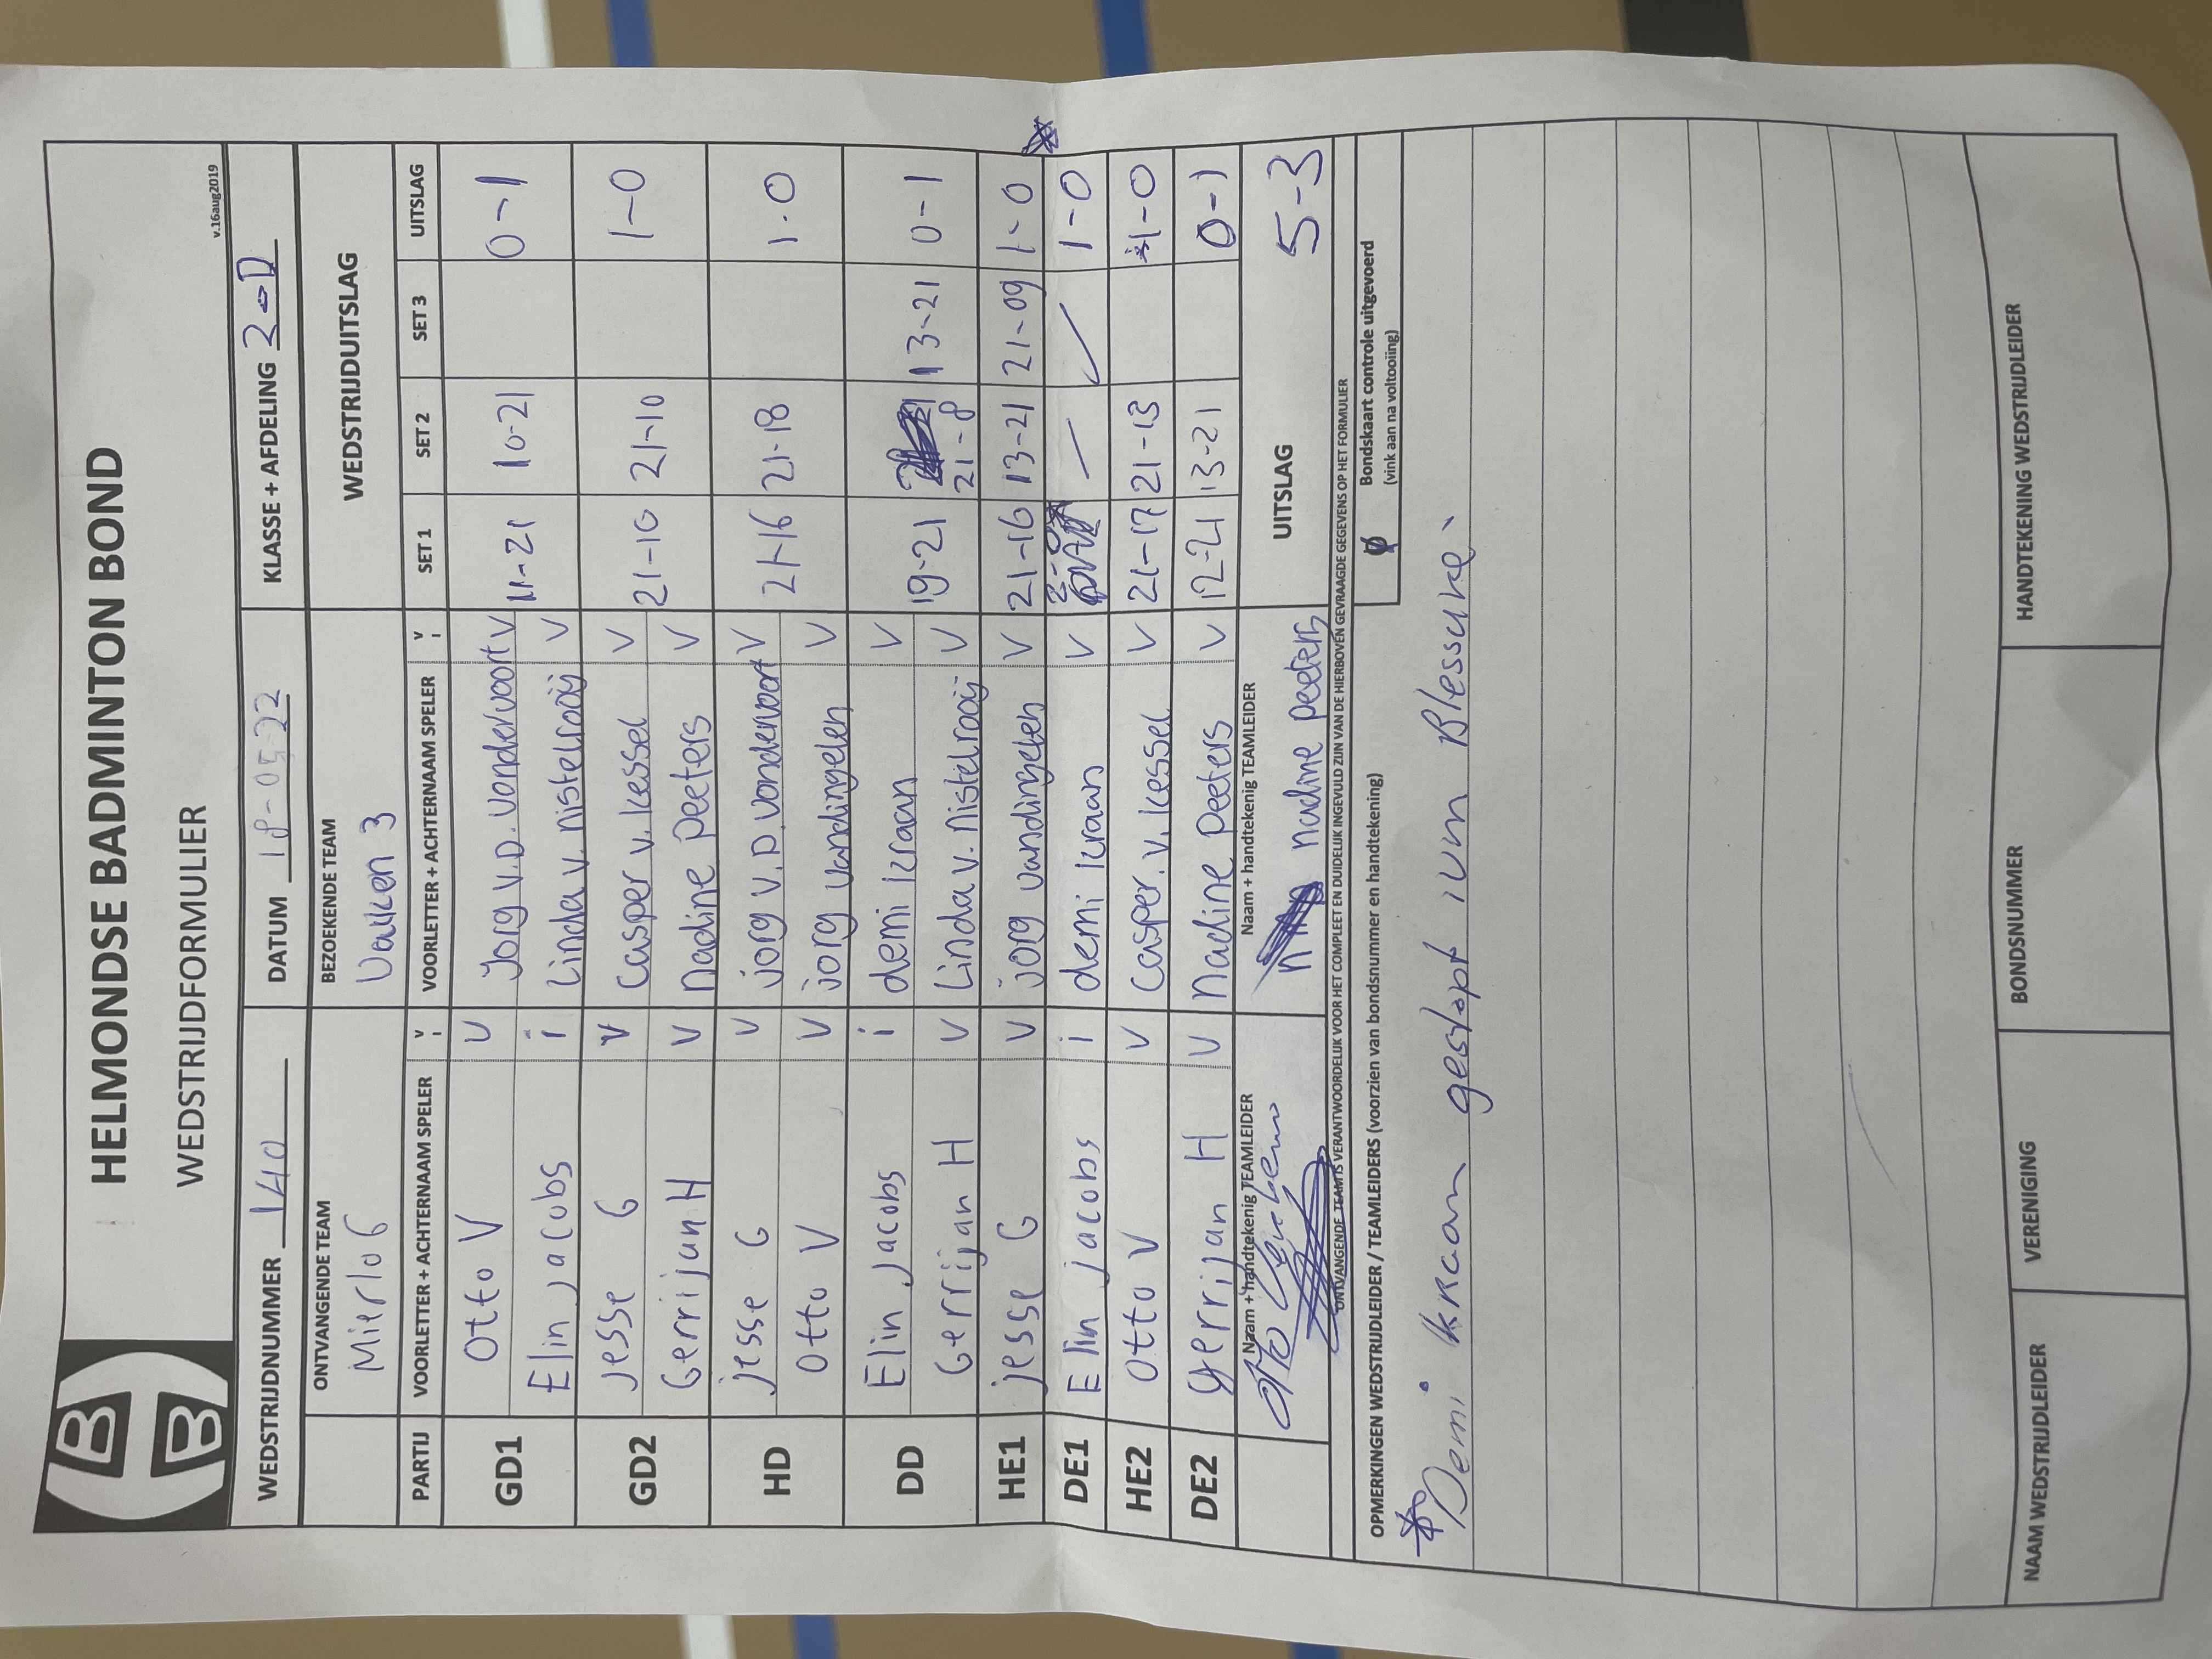 HELMONDSE BADMINTON BOND
WEDSTRIJDFORMULIER
v.16aug2019
WEDSTRIJDNUMMER 140 DATUM 18-05-22 KLASSE + AFDELING 2-D
ONTVANGENDE TEAM BEZOEKENDE TEAM WEDSTRIJDUITSLAG
Mierlo 6 Vauken 3
PARTIJ VOORLETTER + ACHTERNAAM SPELER V I VOORLETTER + ACHTERNAAM SPELER V I SET 1 SET 2 SET 3 UITSLAG
GD1 Otto V V Jorg v.D. Vondervoort V 11-21 10-21 0-1
Elin Jacobs i Linda v. nistelrooij V
GD2 Jesse G V Casper v. Kessel V 21-10 21-10 1-0
Gerrijan H V nadine peeters V
HD jesse G V jorg v.D. Vondervoort V 21-16 21-18 1-0
Otto V V jorg vandingelen V
DD Elin Jacobs i demi kraan V 19-21 21-8 13-21 0-1
Gerrijan H V Linda v. nistelrooij V
HE1 jesse G V jorg vandingelen V 21-16 13-21 21-09 1-0
DE1 Elin jacobs i demi kraan V 2-0 1-0
HE2 Otto V V Casper. v. Kessel V 21-17 21-13 1-0
DE2 gerrijan H V nadine peeters V 12-21 13-21 0-1
Naam + handtekenig TEAMLEIDER Naam + handtekenig TEAMLEIDER UITSLAG 5-3
Otto nadine peeters
ONTVANGENDE TEAM IS VERANTWOORDELIJK VOOR HET COMPLEET EN DUIDELIJK INGEVULD ZIJN VAN DE HIERBOVEN GEVRAAGDE GEGEVENS OP HET FORMULIER
OPMERKINGEN WEDSTRIJDLEIDER / TEAMLEIDERS (voorzien van bondsnummer en handtekening)
Bondskaart controle uitgevoerd
(vink aan na voltooiing)
* Demi kraan gestopt ivm Blessure.
NAAM WEDSTRIJDLEIDER VERENIGING BONDSNUMMER HANDTEKENING WEDSTRIJDLEIDER